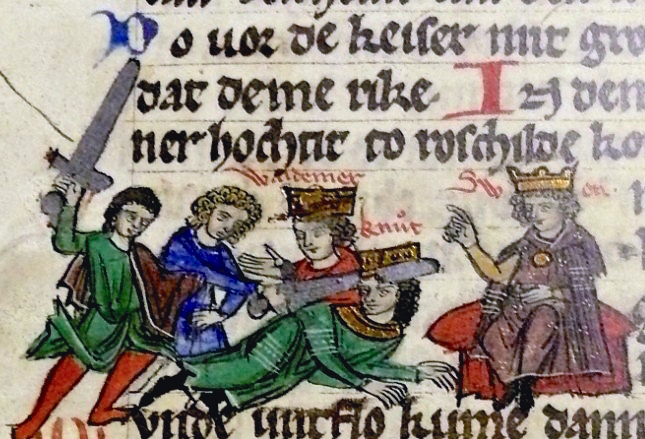 Do uor de keiser mit gro
dat deme rike. In den
ner hochtit to roschilde ko
waldemer Sw en
knůt
vnde untflo kume dann